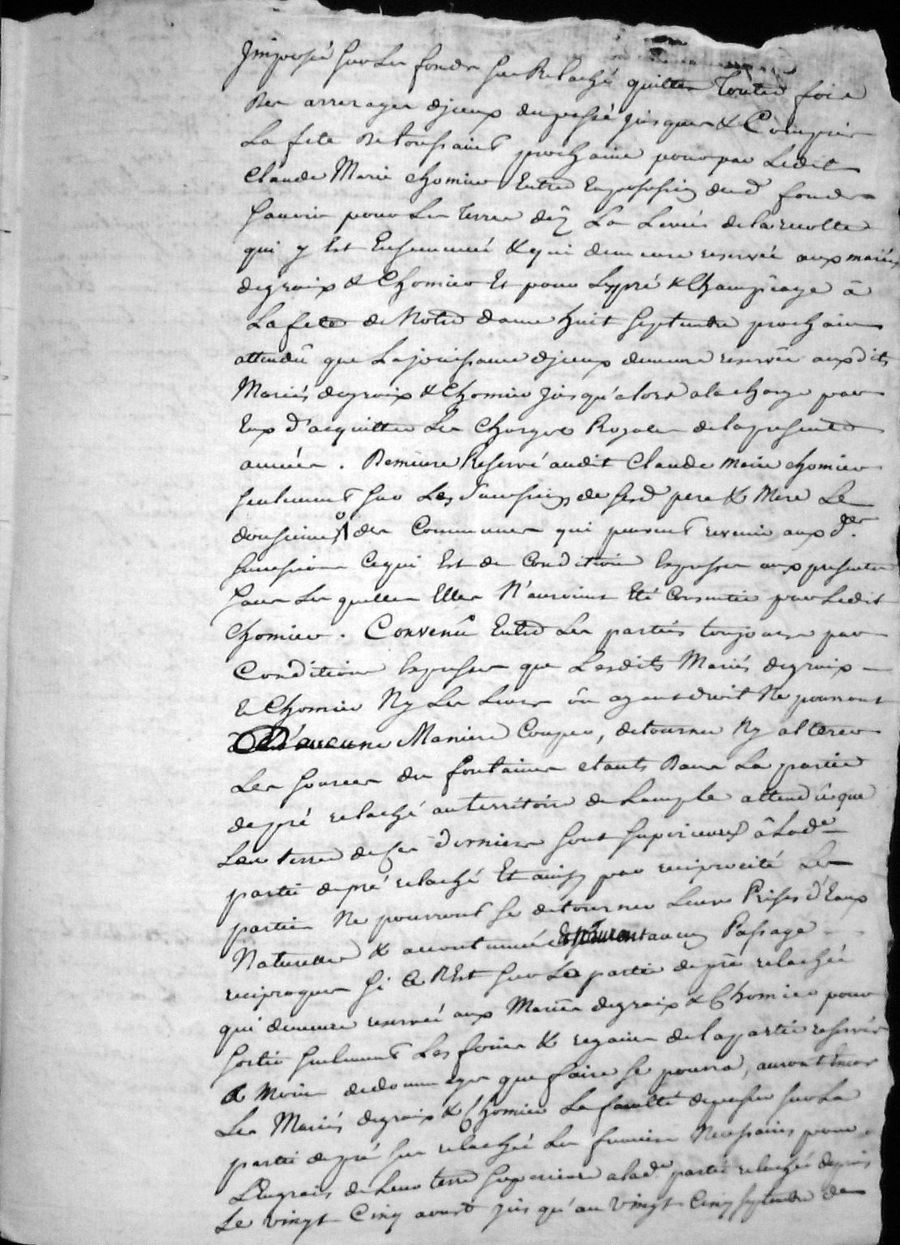 jmposés sur les fonds sus Relachés quittes toutes fois
des arrerages djceux du passé jusques & Compris
La fete de toussaint prochaine pour par Ledit
Claude Marie chomier Entrer En possession desd. fonds
savoir pour Les terres dez La Levée de la recolte
qui y Est Ensemencée & qui demeure reservée aux mariés
degraix & Chomier Et pour Le pré & Champéage à
La fete de Notre dame huit septembre prochain
attendû que La jouissance djceux demeure reservée auxdits
Mariés degraix & Chomier jusqu'alors a la charge par
Eux d'acquitter Les Charges Royales de la presente
année. Demeure Reservé audit Claude Marie chomier
seulement sur Les successions de sesd. pere & Mere Le
des Communes qui peuvent revenir aux des.
successions Ce qui Est de Condition Expresse aux presentes
sans Les quelles Elles N'auroient Eté Consenties par Ledit
Chomier. Convenû Entre Les parties toujours par
Condition Expresse que Lesdits Mariés degraix
& Chomier Ny Les Leurs ôu ayant droit Ne pourront
D'aucune Maniere Couper, detourner Ny alterer
Les sources des fontaines etants Dans La partie
de pré relaché au territoire de attendû que
Les terres de Ces derniers sont superieures â Lade.
partie de pré relaché Et ainsy par reciprocité Les
parties Ne pourront se detourner Leurs Prises d'Eaux
Naturelles & accoutumées aucun Passage
reciproque si Ce N'Est sur La partie de pré relaché
qui demeure reservée aux Mariés degraix & Chomier pour
sortir seulement Les foins & regains de la partie reservée
a Moins de dommages que faire se pourra, auront Encor
Les Mariés degraix & Chomier La faculté de passer sur La
partie de pré sus relaché Les fumiers Necessaires pour
L'Engrais de Leur terre superieure a lade. partie relaché depuis
Le vingt Cinq avout jusqu'au vingt Cinq septembre de